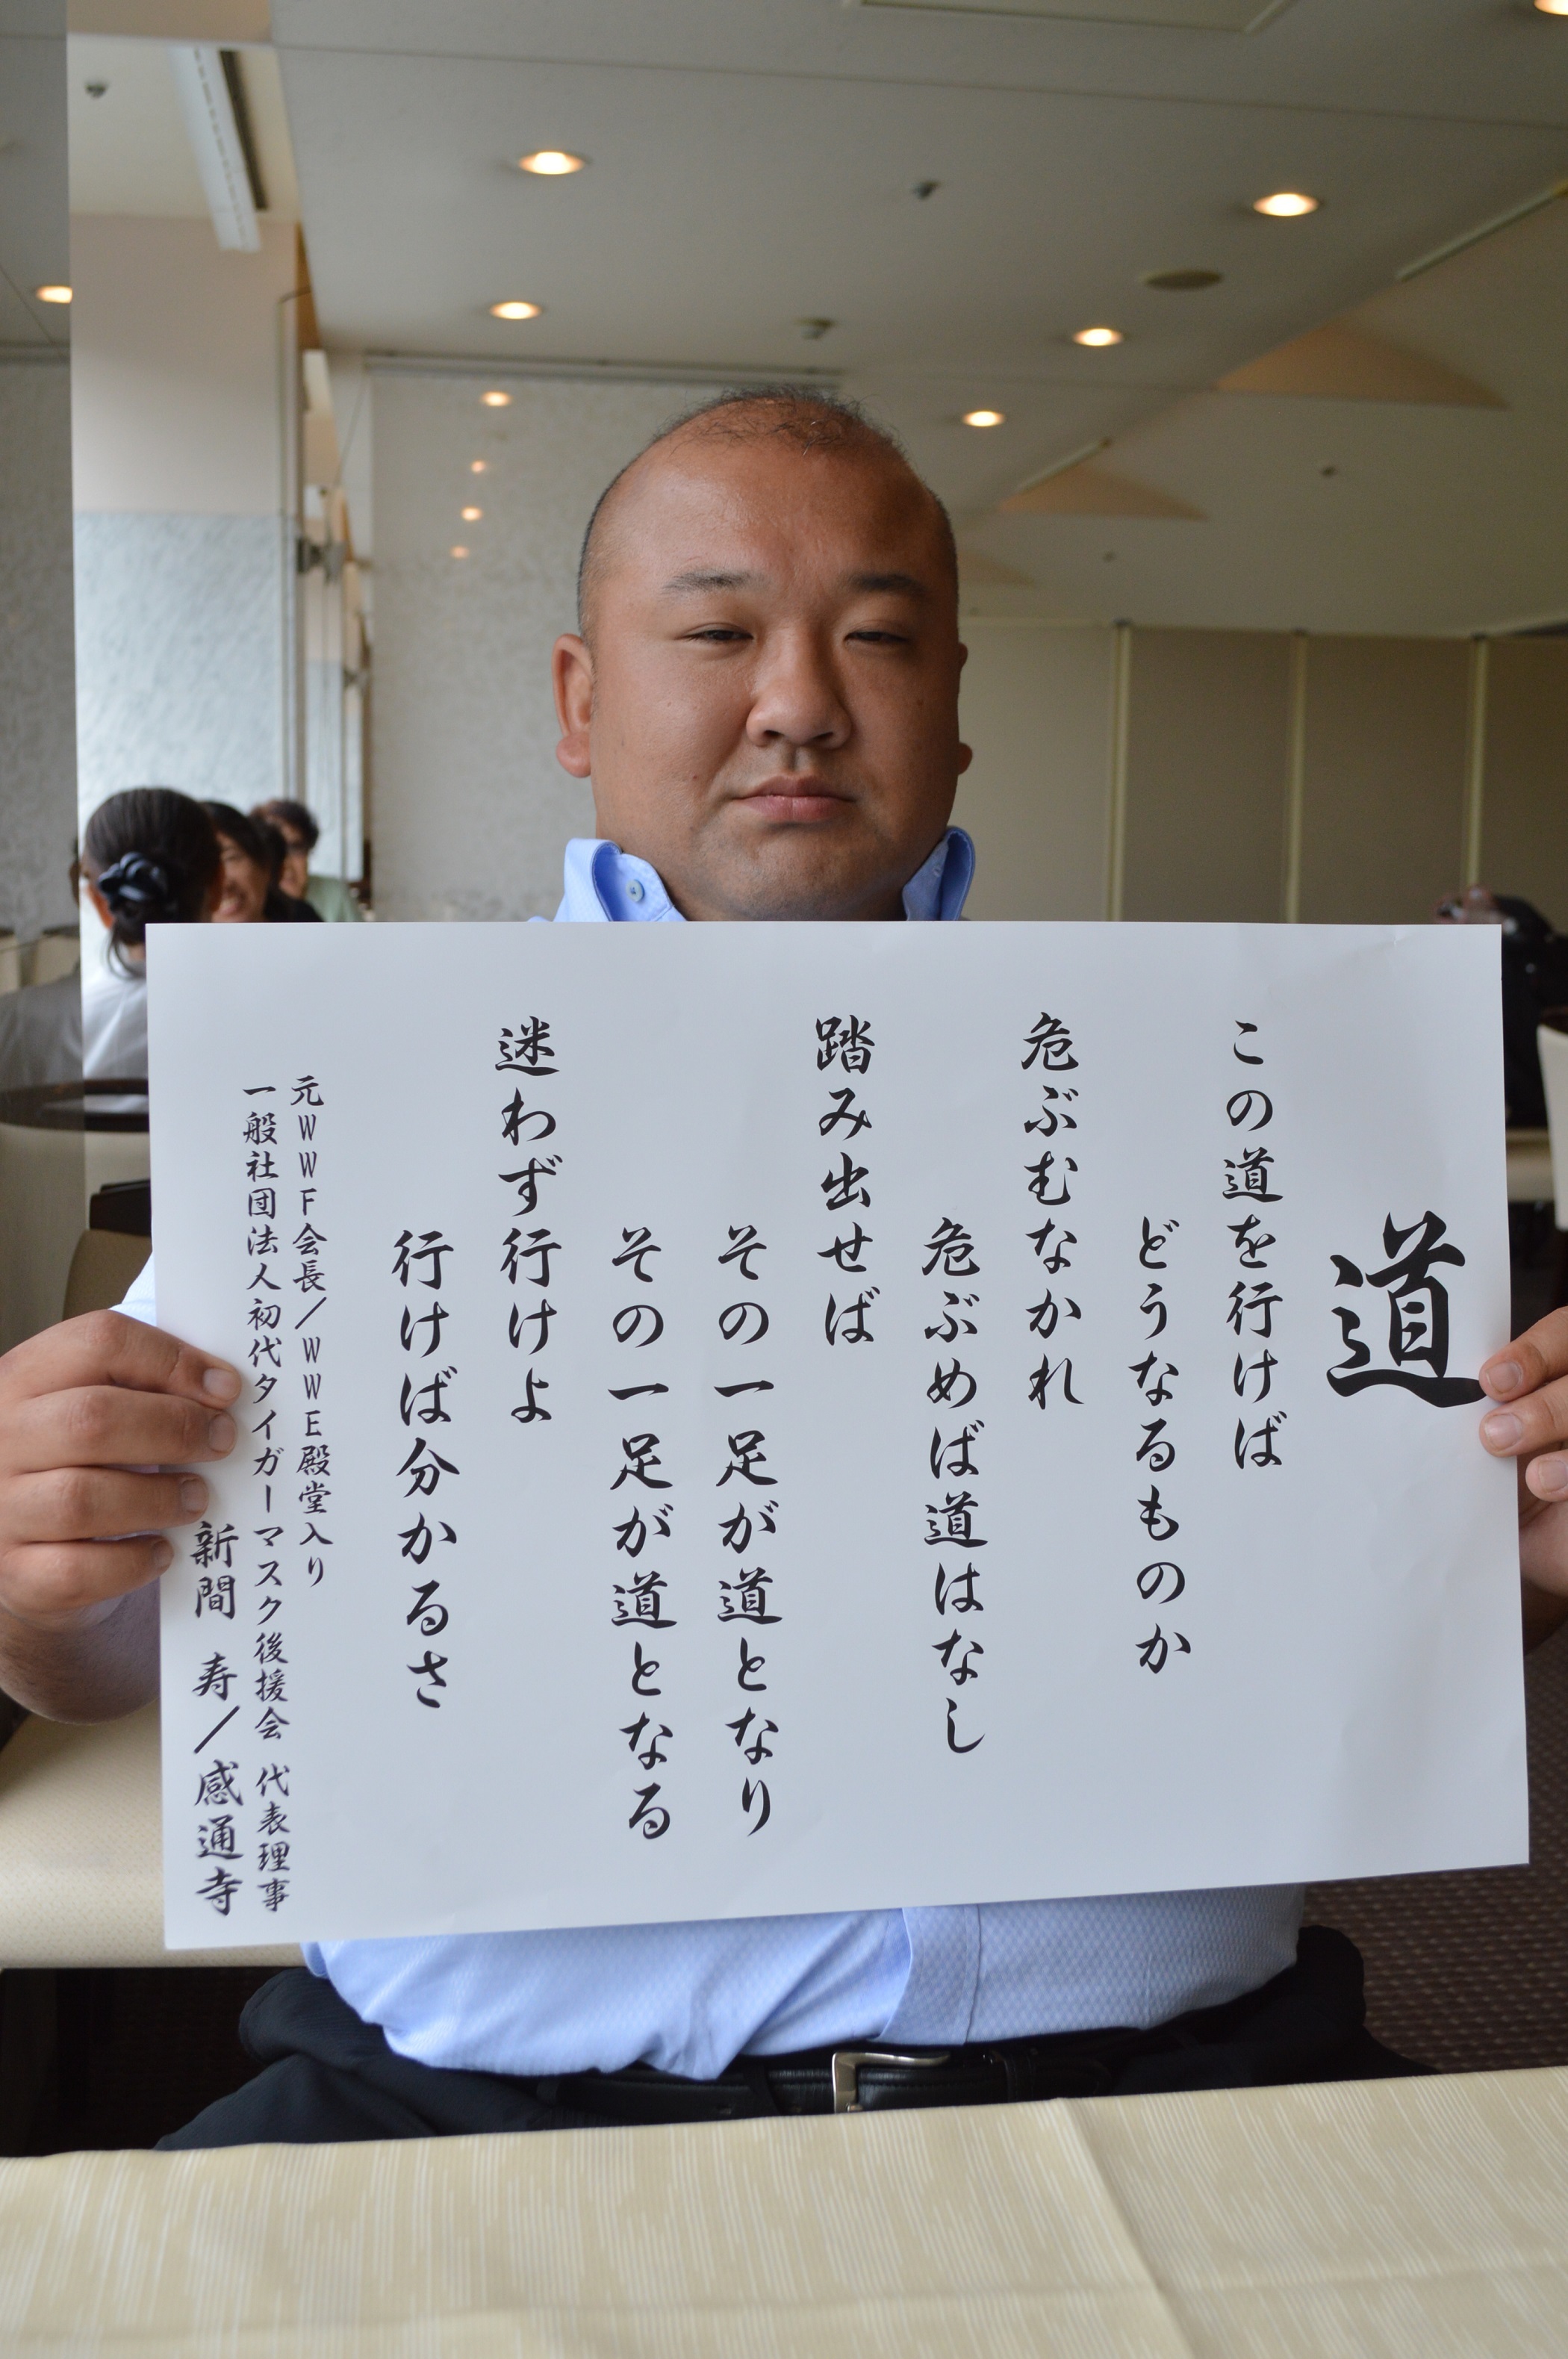 道
この道を行けば
どうなるものか
危ぶむなかれ
危ぶめば道はなし
踏み出せば
その一足が道となり
その一足が道となる
迷わず行けよ
行けば分かるさ
元WWF会長／WWE殿堂入り
一般社団法人初代タイガーマスク後援会 代表理事
新間 寿／感通寺